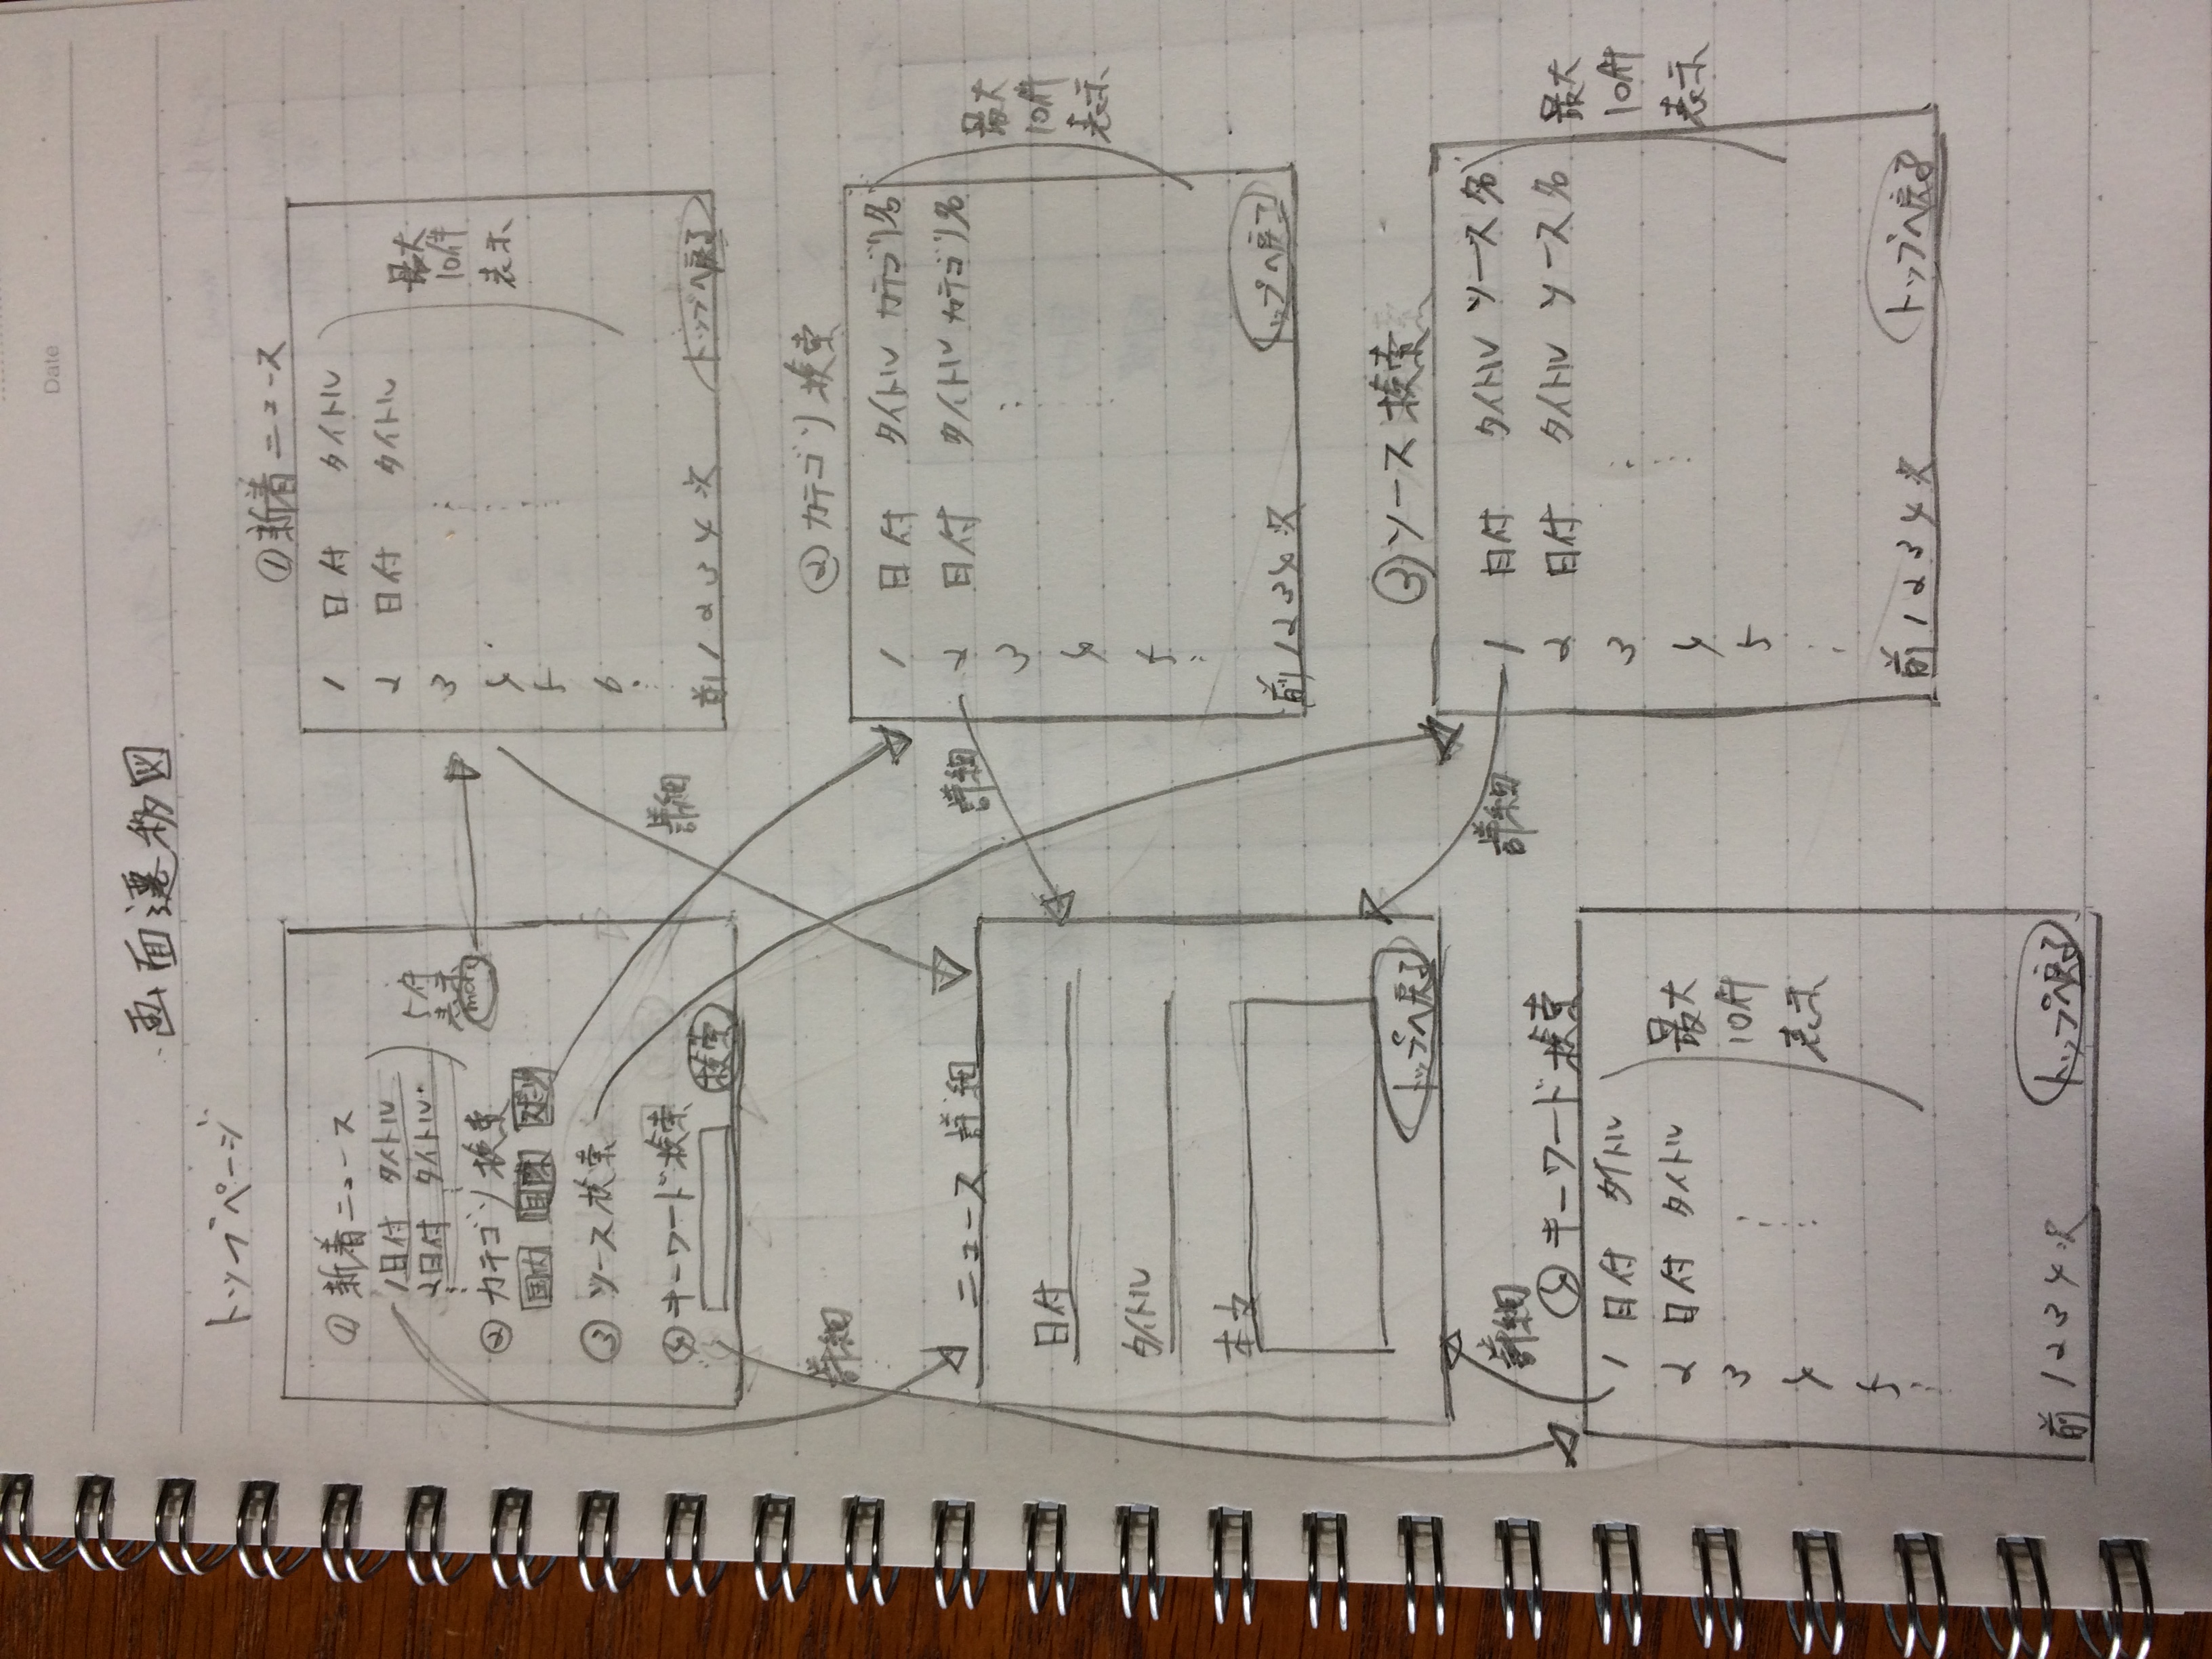 Date
画面遷移図
トップページ
① 新着ニュース
1日付 タイトル
2日付 タイトル
5件
表示
more
② カテゴリ検索
国内 国際 スポーツ
③ ソース検索
④ キーワード検索
検索
① 新着ニュース
1 日付 タイトル
2 日付 タイトル
3
4
5
6
最大
10件
表示
前 1 2 3 4 次 トップへ戻る
詳細
詳細
② カテゴリ検索
1 日付 タイトル カテゴリ名
2 日付 タイトル カテゴリ名
3
4
5
最大
10件
表示
前 1 2 3 4 次 トップへ戻る
詳細
ニュース詳細
日付
タイトル
本文
トップへ戻る
③ ソース検索
1 日付 タイトル ソース名
2 日付 タイトル ソース名
3
4
5
最大
10件
表示
前 1 2 3 4 次 トップへ戻る
詳細
詳細
④ キーワード検索
1 日付 タイトル
2 日付 タイトル
3
4
5
最大
10件
表示
前 1 2 3 4 次 トップへ戻る